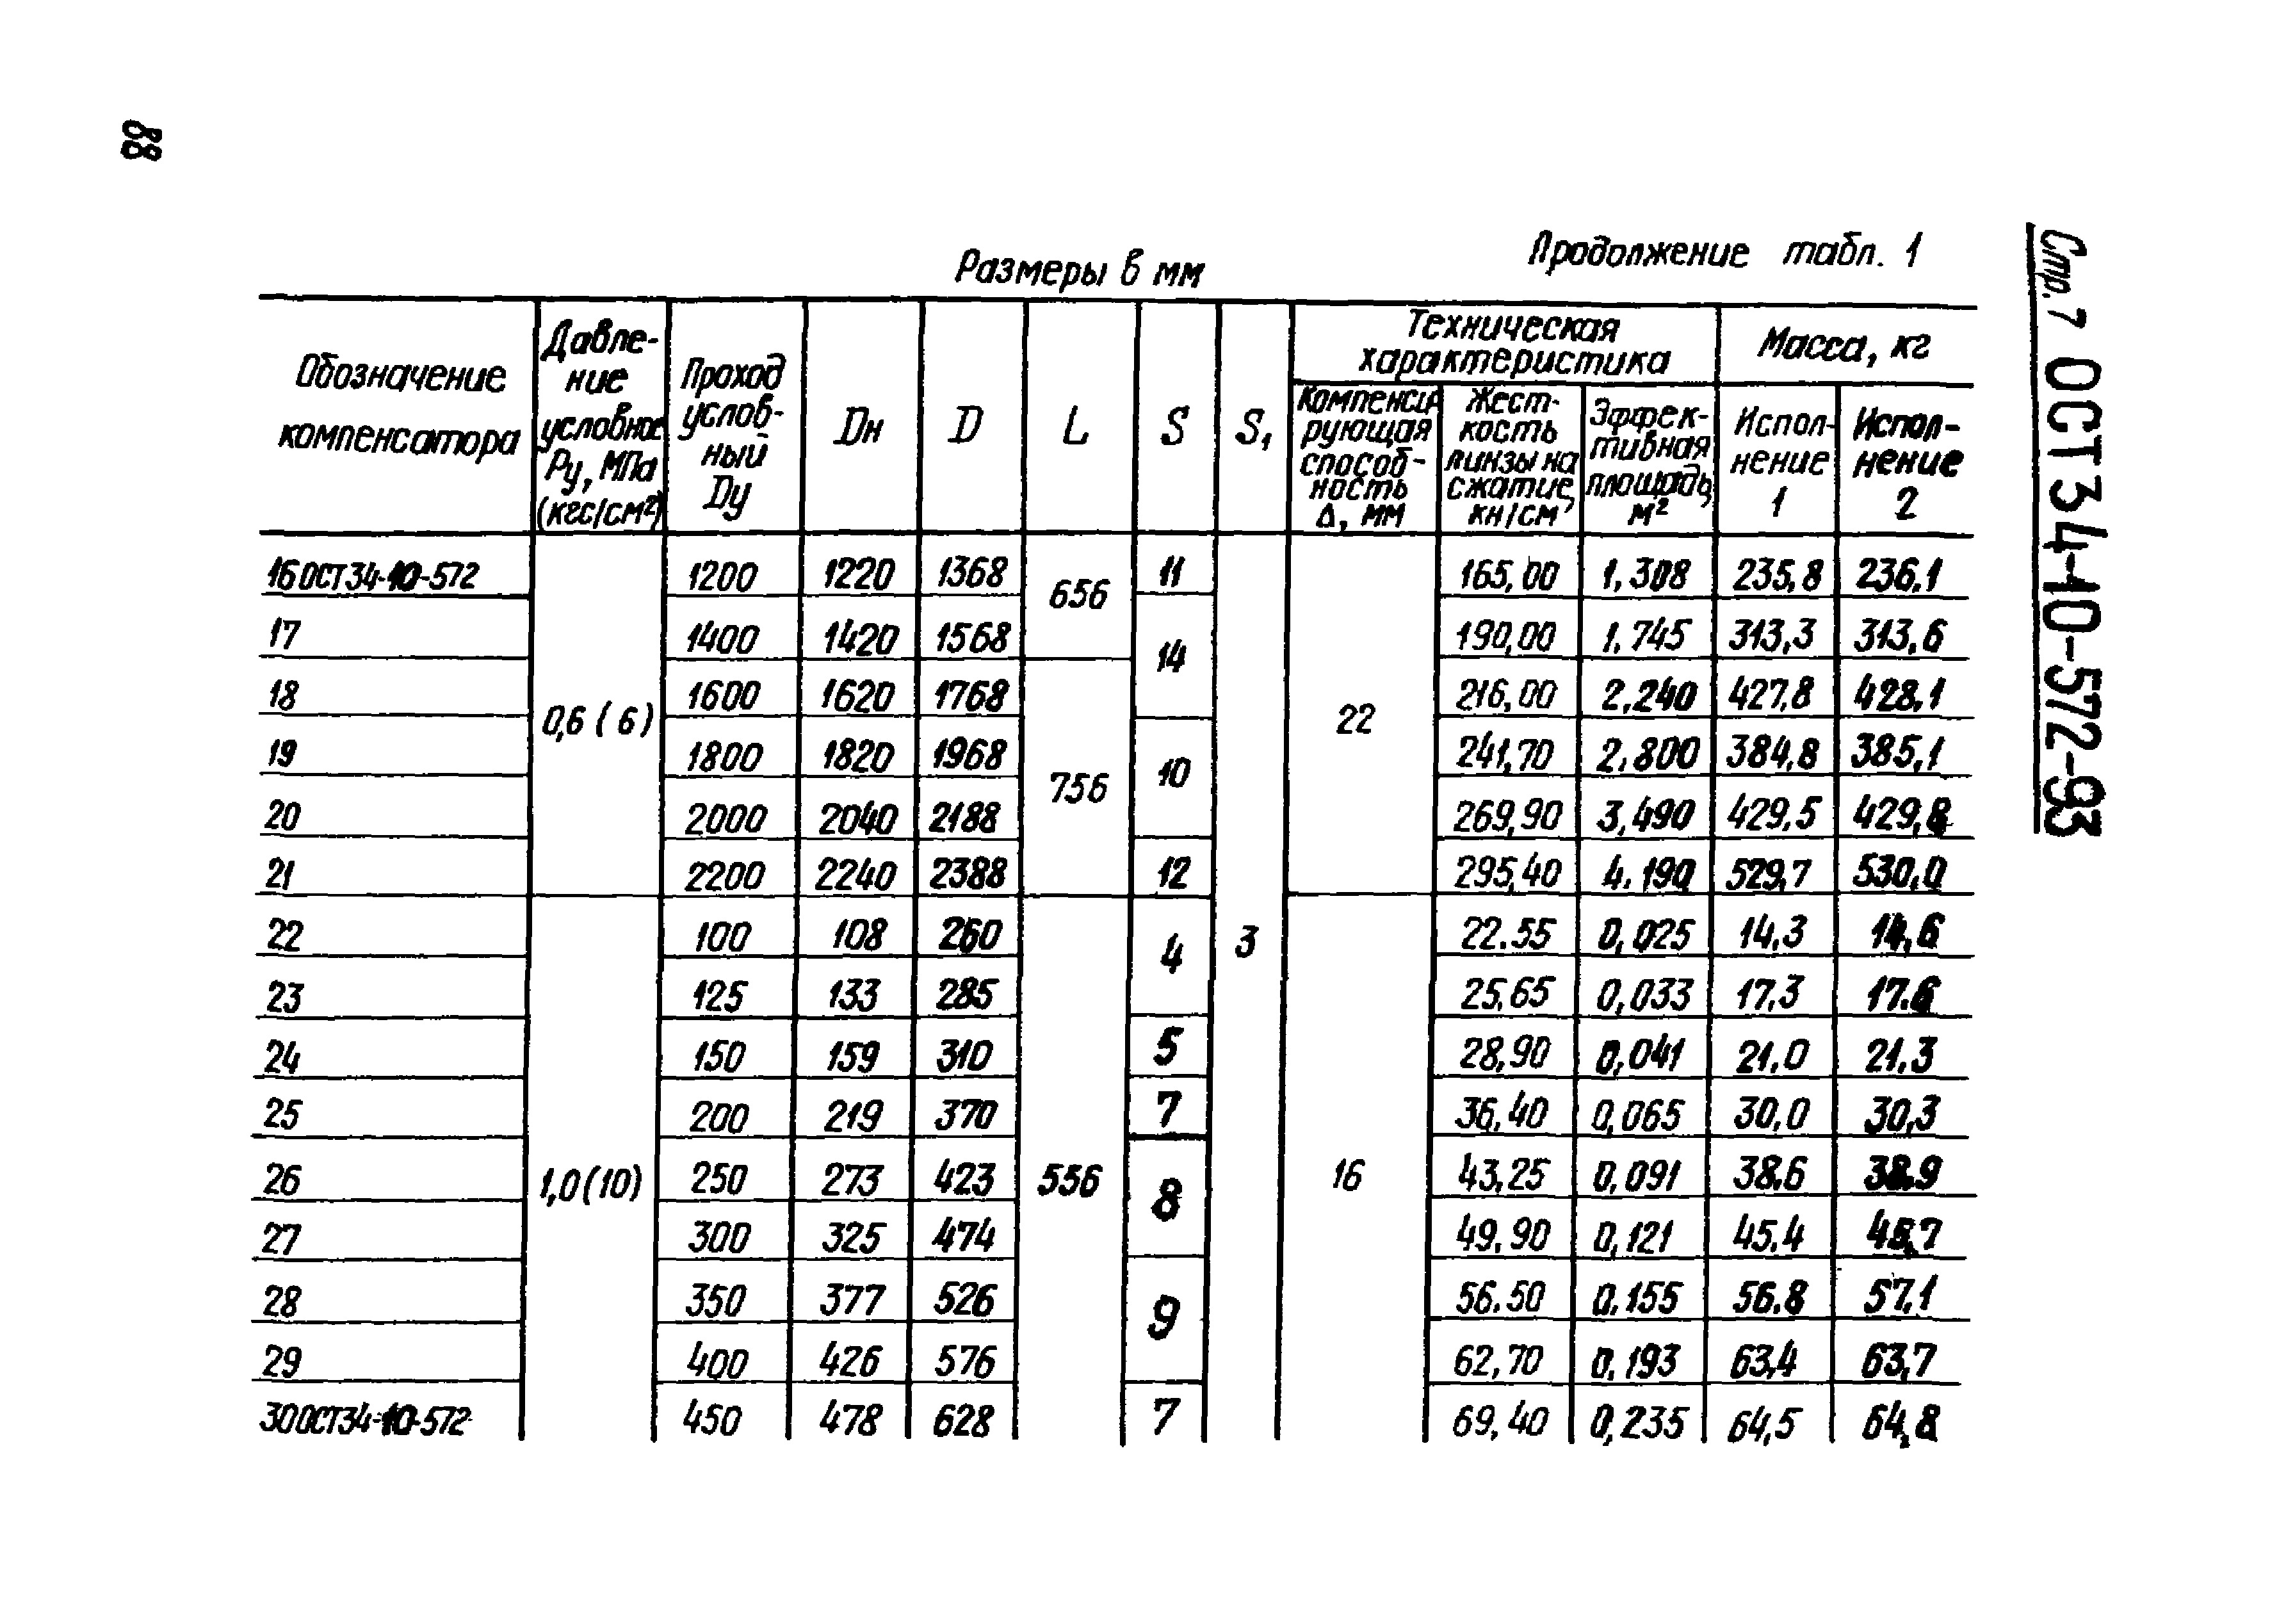 88
Размеры в мм
Продолжение табл. 1
Стр. 7 ОСТ 34-10-572-93
Обозначение компенсатора
Давле-
ние
условное
Ру, МПа
(кгс/см²)
Проход
услов-
ный
Dу
Dн
D
L
S
S₁
Техническая
характеристика
Компенси-
рующая
способ-
ность
Δ, мм
Жест-
кость
линзы на
сжатие,
кН/см
Эффек-
тивная
площадь,
м²
Масса, кг
Испол-
нение
1
Испол-
нение
2
16 ОСТ 34-10-572 0,6 (6) 1200 1220 1368 656 11 3 22 165,00 1,308 235,8 236,1
17 1400 1420 1568 14 190,00 1.745 313,3 313,6
18 1600 1620 1768 756 216,00 2.240 427,8 428,1
19 1800 1820 1968 10 241,70 2.800 384,8 385,1
20 2000 2040 2188 269,90 3,490 429,5 429,8
21 2200 2240 2388 12 295,40 4.190 529,7 530,0
22 1,0 (10) 100 108 260 556 4 16 22.55 0,025 14,3 14,6
23 125 133 285 25,65 0,033 17,3 17.6
24 150 159 310 5 28,90 0,041 21,0 21,3
25 200 219 370 7 36,40 0,065 30,0 30,3
26 250 273 423 8 43,25 0,091 38,6 38,9
27 300 325 474 49,90 0,121 45,4 45,7
28 350 377 526 9 56.50 0.155 56.8 57,1
29 400 426 576 62,70 0,193 63,4 63,7
30 ОСТ 34-10-572 450 478 628 7 69,40 0,235 64,5 64,8